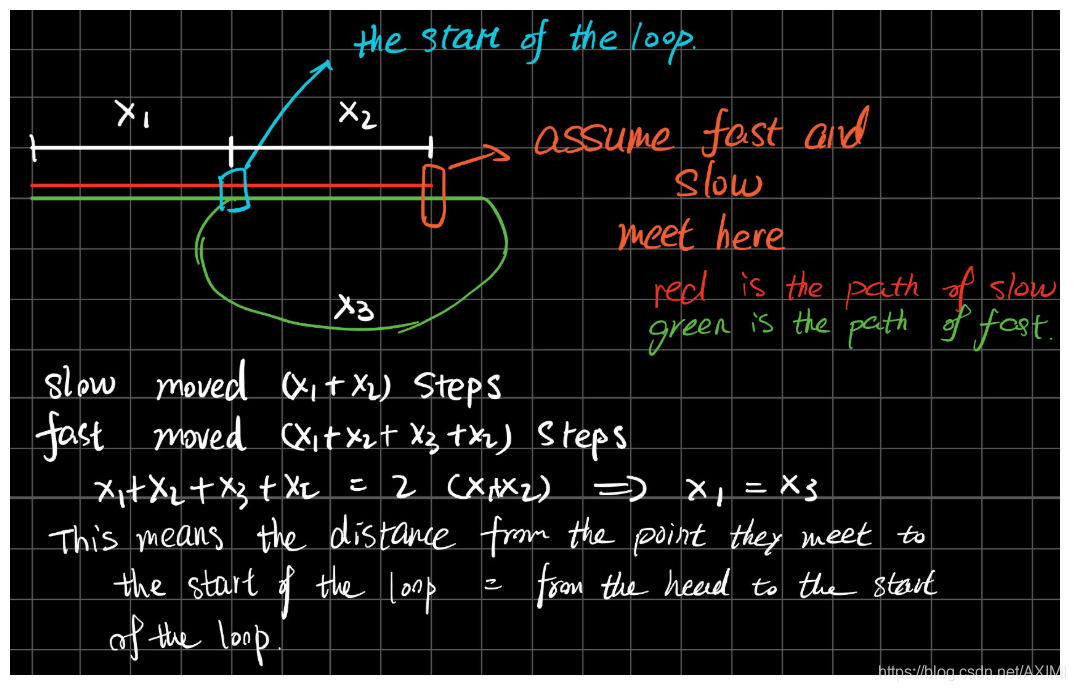 the start of the loop.
x1
x2
assume fast and
slow
meet here
x3
red is the path of slow
green is the path of fast.
slow moved (x1+x2) steps
fast moved (x1+x2+x3+x2) steps
x1+x2+x3+x2 = 2 (x1+x2) ⟹ x1 = x3
This means the distance from the point they meet to
the start of the loop = from the head to the start
of the loop.
https://blog.csdn.net/AXIMI